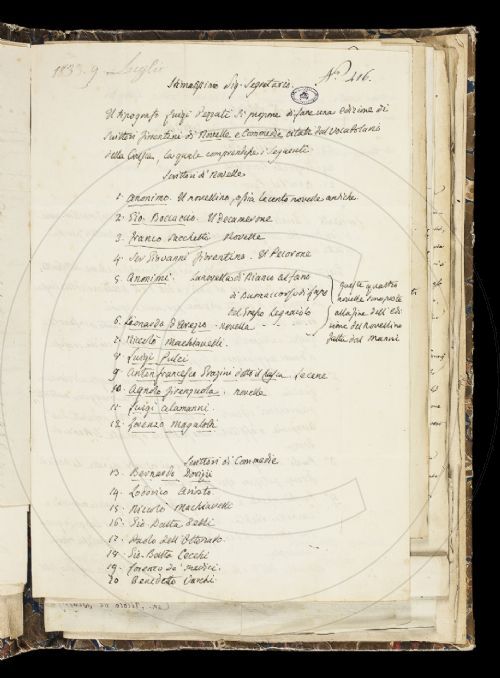 1833. 9 Luglio
N.º 216.
Stimatissimo Sig. Segretario.
Il tipografo Luigi Pezzati si propone di fare una edizione di
Scrittori fiorentini di Novelle e Commedie citate dal Vocabolario
della Crusca, la quale comprendesse i seguenti
Scrittori di Novelle
1. Anonimo. Il novellino, ossia le cento novelle antiche.
2. Gio. Boccaccio. Il Decamerone
3. Franco Sacchetti Novelle
4. Ser Giovanni fiorentino. Il Pecorone
5. Anonimi. La novella di Bianco Alfani
di Buonaccorso di Lapo
del Grasso Legnaiolo
6. Leonardo d'Arezzo - novella
queste quattro
novelle sono poste
alla fine dell'Edi
zione del Novellino
fatta dal Manni
7. Niccolò Machiavelli.
8. Luigi Pulci
9. Anton francesco Grazini detto il Lasca. Le cene
10. Agnolo firenzuola. novelle
11. Luigi Alamanni.
12. Lorenzo Magalotti
Scrittori di Commedie
13. Bernardo Dovizii
14. Lodovico Ariosto
15. Niccolò Machiavelli
16. Gio. Batta Gelli
17. Paolo dell'Ottonaio.
18. Gio. Batta Cecchi
19. Lorenzo de' medici.
20 Benedetto Varchi